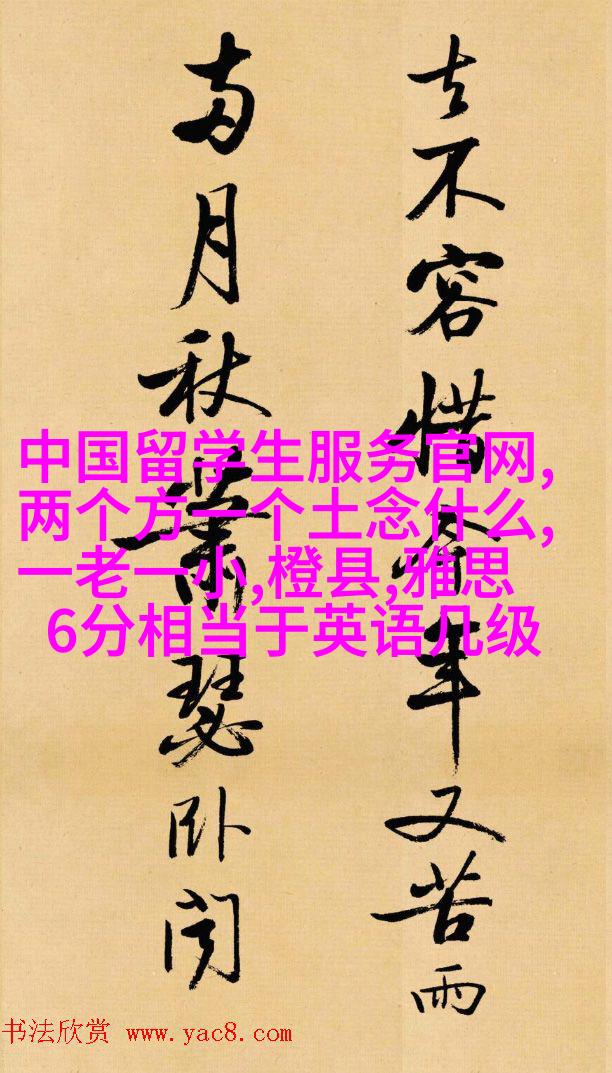 去不容惜今年又苦雨
两月秋蕭瑟卧闻
中国留学生服务官网,
两个方一个土念什么,
一老一小,橙县,雅思
6分相当于英语几级
书法欣赏 www.yac8.com